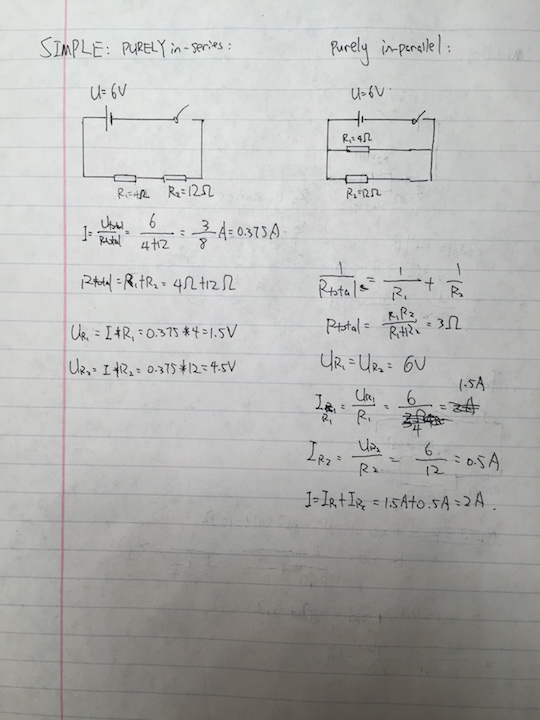 SIMPLE: PURELY in-series:
U=6V
R₁=4Ω R₂=12Ω
I=Utotal/Rtotal=6/(4+12)=3/8A=0.375A
Rtotal=R₁+R₂=4Ω+12Ω
UR₁=I*R₁=0.375*4=1.5V
UR₂=I*R₂=0.375*12=4.5V
Purely in-parallel:
U=6V
R₁=4Ω
R₂=12Ω
1/Rtotal=1/R₁+1/R₂
Rtotal=R₁R₂/(R₁+R₂)=3Ω
UR₁=UR₂=6V
IR₁=UR₁/R₁=6/4=1.5A
IR₂=UR₂/R₂=6/12=0.5A
I=IR₁+IR₂=1.5A+0.5A=2A.